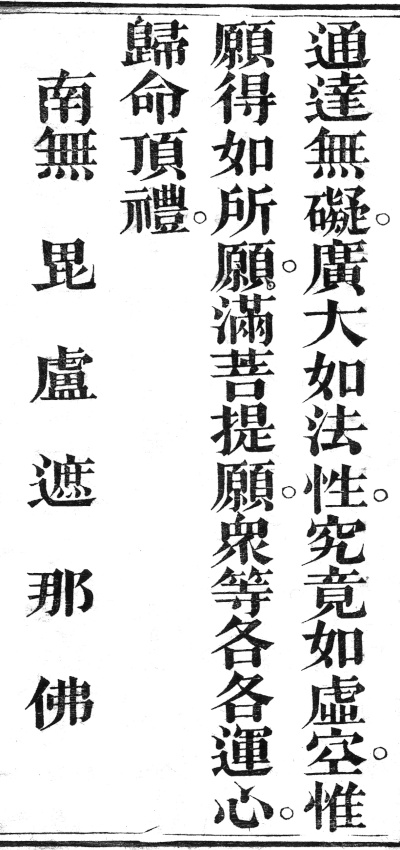 通達無礙。廣大如法性。究竟如虛空。惟
願得如所願。滿菩提願。衆等各各運心。
歸命頂禮。
南無毘盧遮那佛